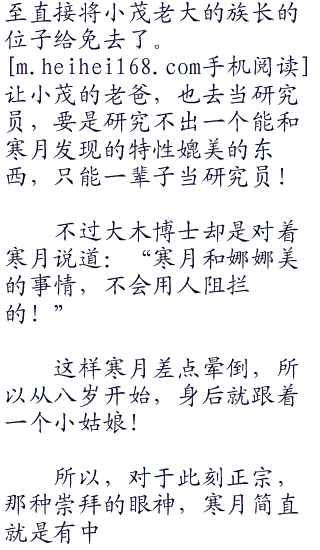 至直接将小茂老大的族长的
位子给免去了。
[m.heihei168.com手机阅读]
让小茂的老爸，也去当研究
员，要是研究不出一个能和
寒月发现的特性媲美的东
西，只能一辈子当研究员！
不过大木博士却是对着
寒月说道：“寒月和娜娜美
的事情，不会用人阻拦
的！”
这样寒月差点晕倒，所
以从八岁开始，身后就跟着
一个小姑娘！
所以，对于此刻正宗，
那种崇拜的眼神，寒月简直
就是有中